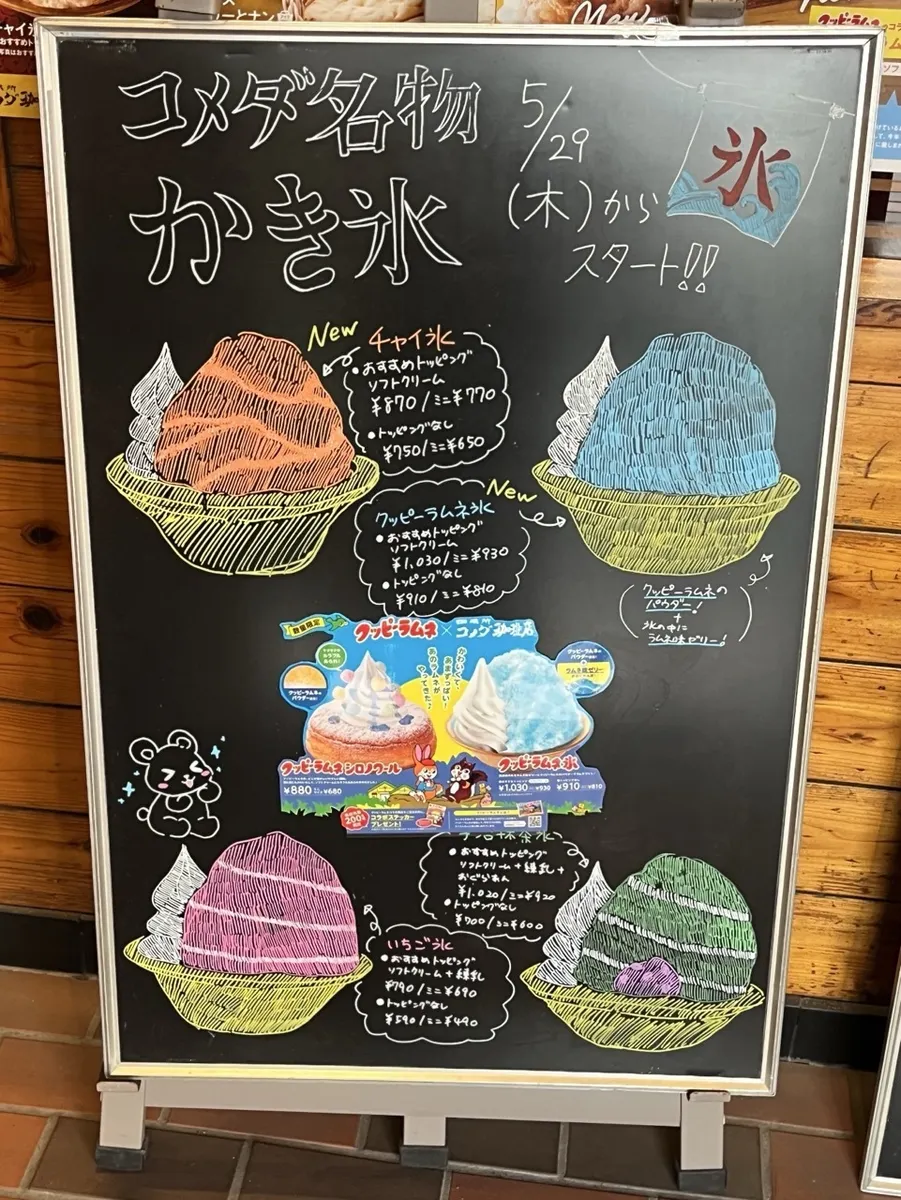 コメダ名物
かき氷
5/29
(木)から
スタート!!
氷
New
チャイ氷
●おすすめトッピング
ソフトクリーム
¥870/ミニ¥770
●トッピングなし
¥750/ミニ¥650
New
クッピーラムネ氷
●おすすめトッピング
ソフトクリーム
¥1,030/ミニ¥930
●トッピングなし
¥910/ミニ¥810
クッピーラムネの
パウダー!
+
氷の中に
ラムネ味ゼリー!
数量限定
クッピーラムネ×コメダ珈琲店
かわいくて、
あまずっぱい!
あのラムネが
やってきた♪
クッピーラムネの
パウダー
クッピーラムネの
パウダー
ラムネ味ゼリー
クッピーラムネシロノワール
¥880 ¥680
クッピーラムネ氷
¥1,030 ¥930 ¥910 ¥810
コラボステッカー
プレゼント!
抹茶氷
●おすすめトッピング
ソフトクリーム+練乳+
おぐらあん
¥1,020/ミニ¥920
●トッピングなし
¥700/ミニ¥600
いちご氷
●おすすめトッピング
ソフトクリーム+練乳
¥790/ミニ¥690
●トッピングなし
¥590/ミニ¥490